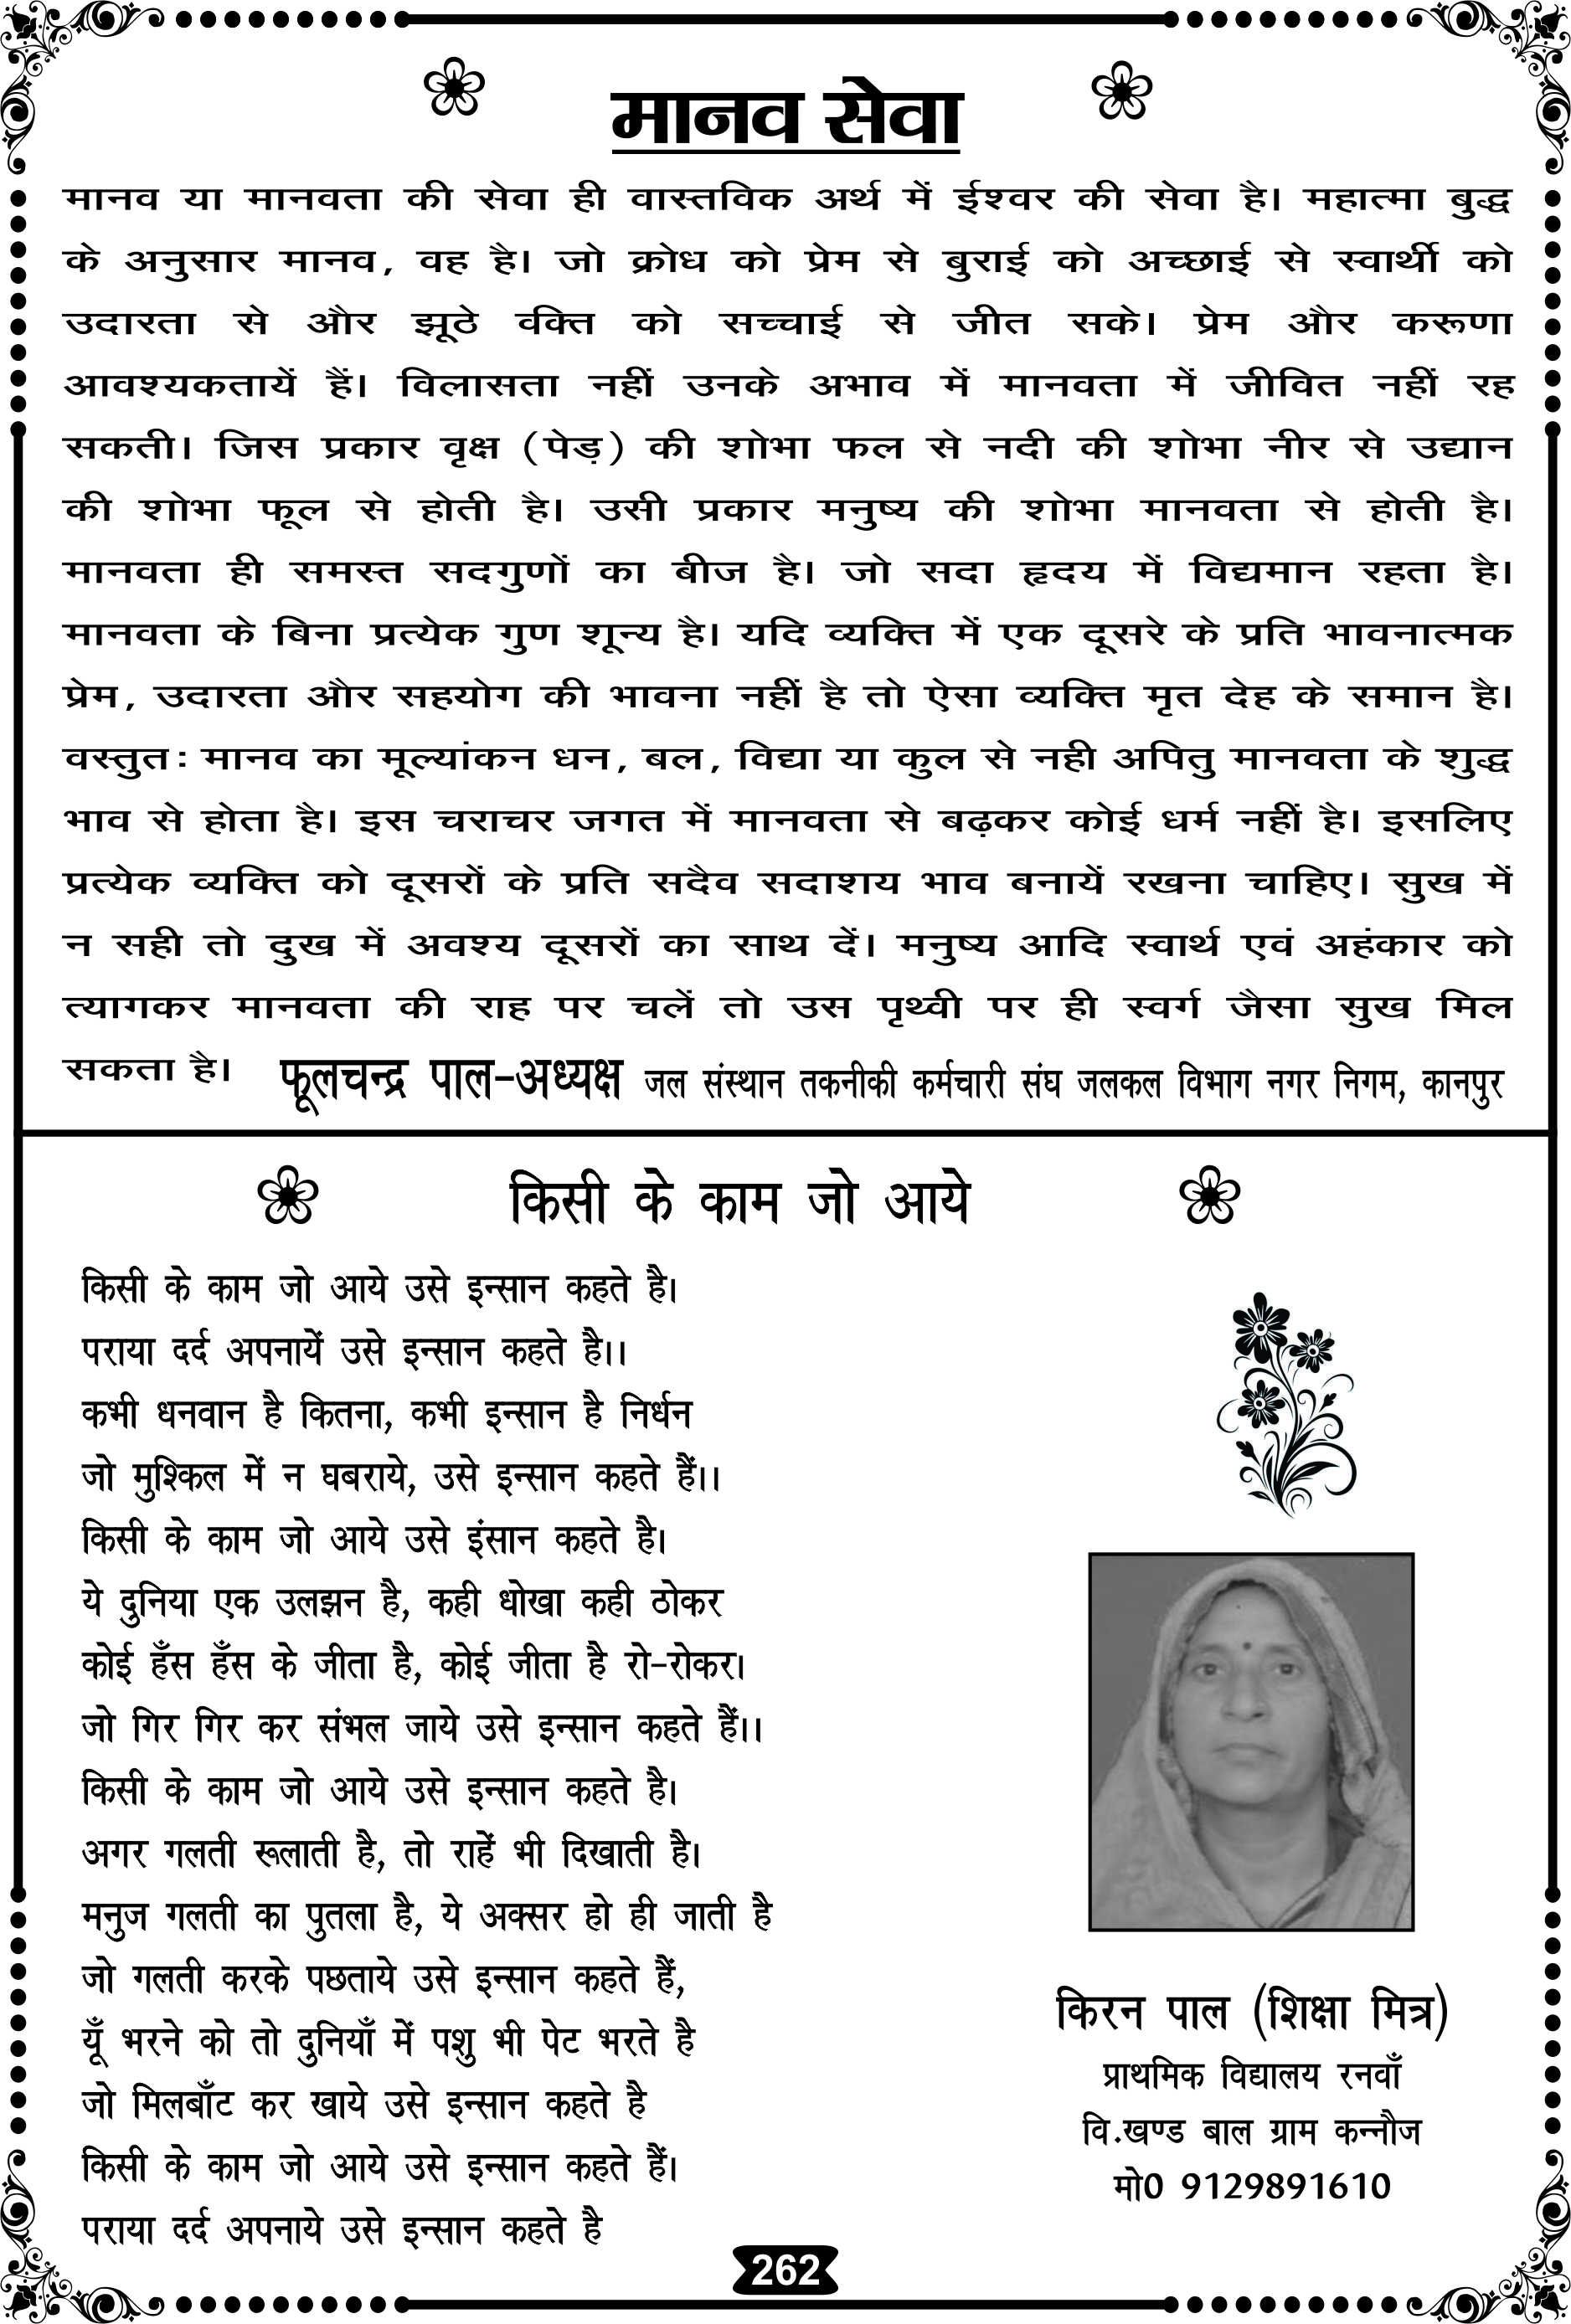 मानव सेवा
मानव या मानवता की सेवा ही वास्तविक अर्थ में ईश्वर की सेवा है। महात्मा बुद्ध
के अनुसार मानव, वह है। जो क्रोध को प्रेम से बुराई को अच्छाई से स्वार्थी को
उदारता से और झूठे वक्ति को सच्चाई से जीत सके। प्रेम और करूणा
आवश्यकतायें हैं। विलासता नहीं उनके अभाव में मानवता में जीवित नहीं रह
सकती। जिस प्रकार वृक्ष (पेड़) की शोभा फल से नदी की शोभा नीर से उद्यान
की शोभा फूल से होती है। उसी प्रकार मनुष्य की शोभा मानवता से होती है।
मानवता ही समस्त सदगुणों का बीज है। जो सदा हृदय में विद्यमान रहता है।
मानवता के बिना प्रत्येक गुण शून्य है। यदि व्यक्ति में एक दूसरे के प्रति भावनात्मक
प्रेम, उदारता और सहयोग की भावना नहीं है तो ऐसा व्यक्ति मृत देह के समान है।
वस्तुतः मानव का मूल्यांकन धन, बल, विद्या या कुल से नही अपितु मानवता के शुद्ध
भाव से होता है। इस चराचर जगत में मानवता से बढ़कर कोई धर्म नहीं है। इसलिए
प्रत्येक व्यक्ति को दूसरों के प्रति सदैव सदाशय भाव बनायें रखना चाहिए। सुख में
न सही तो दुख में अवश्य दूसरों का साथ दें। मनुष्य आदि स्वार्थ एवं अहंकार को
त्यागकर मानवता की राह पर चलें तो उस पृथ्वी पर ही स्वर्ग जैसा सुख मिल
सकता है। फूलचन्द्र पाल-अध्यक्ष जल संस्थान तकनीकी कर्मचारी संघ जलकल विभाग नगर निगम, कानपुर
किसी के काम जो आये
किसी के काम जो आये उसे इन्सान कहते है।
पराया दर्द अपनायें उसे इन्सान कहते है।।
कभी धनवान है कितना, कभी इन्सान है निर्धन
जो मुश्किल में न घबराये, उसे इन्सान कहते हैं।।
किसी के काम जो आये उसे इंसान कहते है।
ये दुनिया एक उलझन है, कही धोखा कही ठोकर
कोई हँस हँस के जीता है, कोई जीता है रो-रोकर।
जो गिर गिर कर संभल जाये उसे इन्सान कहते हैं।।
किसी के काम जो आये उसे इन्सान कहते है।
अगर गलती रूलाती है, तो राहें भी दिखाती है।
मनुज गलती का पुतला है, ये अक्सर हो ही जाती है
जो गलती करके पछताये उसे इन्सान कहते हैं,
यूँ भरने को तो दुनियाँ में पशु भी पेट भरते है
जो मिलबाँट कर खाये उसे इन्सान कहते है
किसी के काम जो आये उसे इन्सान कहते हैं।
पराया दर्द अपनाये उसे इन्सान कहते है
किरन पाल (शिक्षा मित्र)
प्राथमिक विद्यालय रनवाँ
वि.खण्ड बाल ग्राम कन्नौज
मो0 9129891610
262